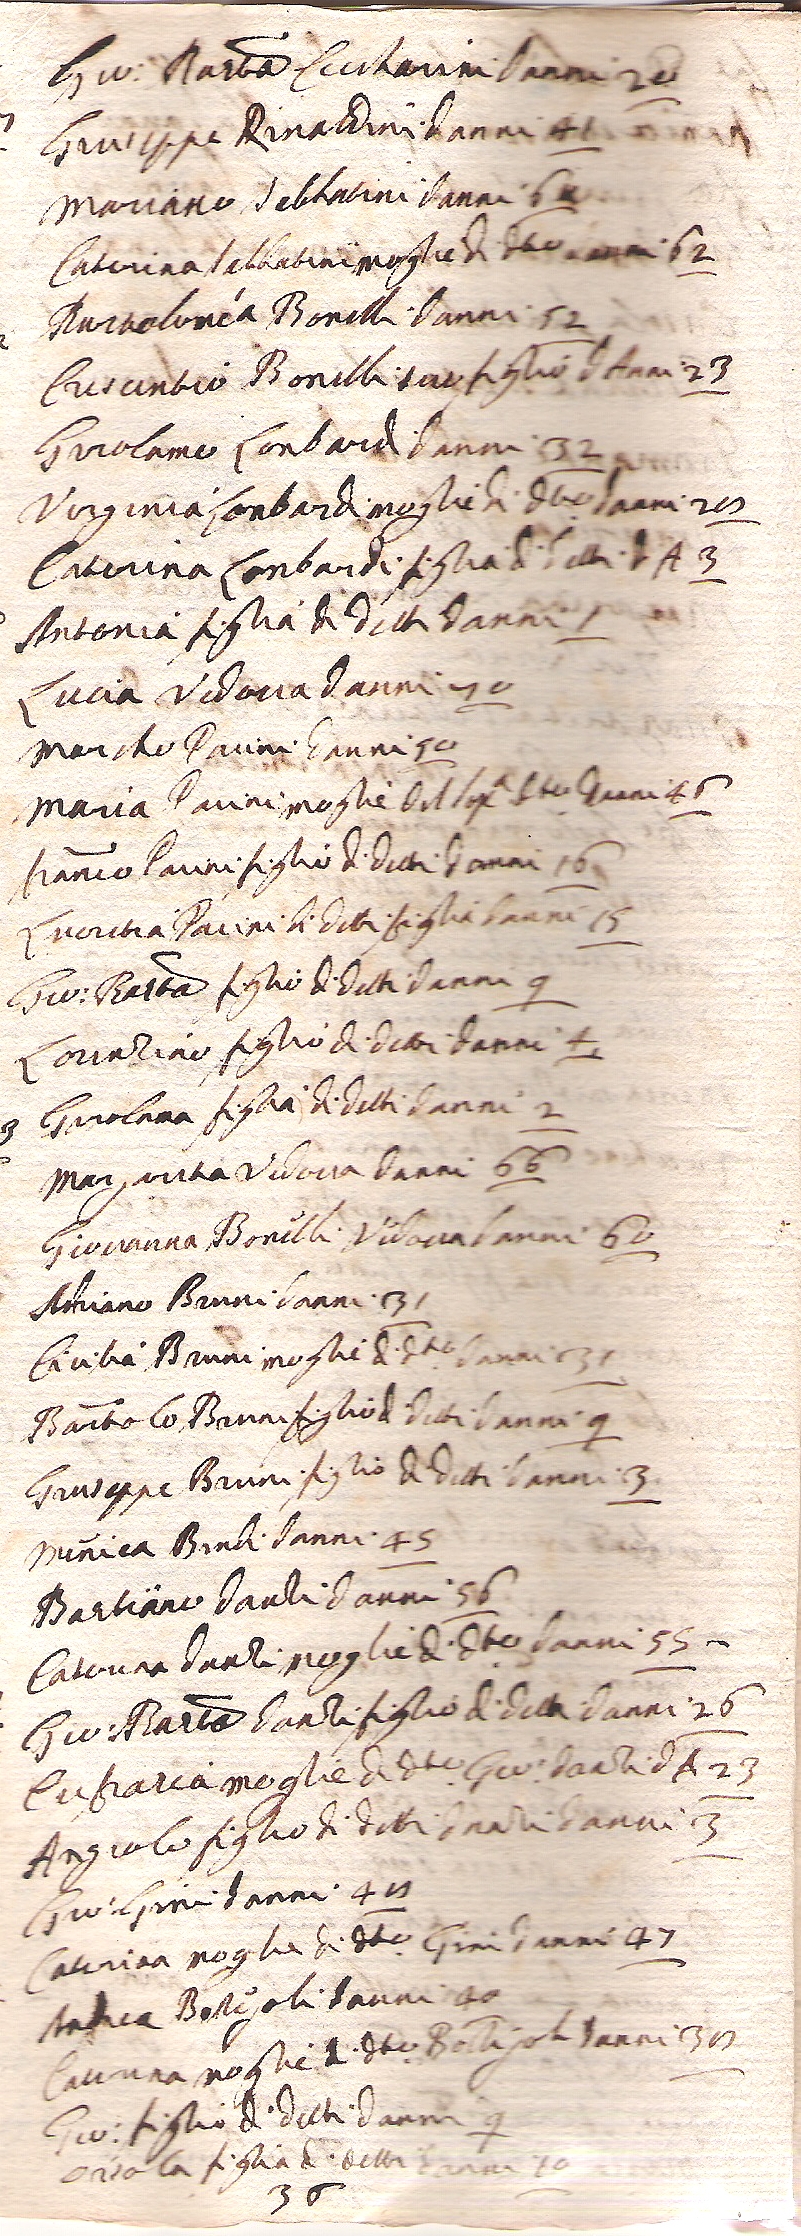 Gio: Batta Ceccharini d'anni
Giuseppe Rinaldini d'anni 41
Mariano Sebbatini d'anni
Caterina Sebbatini moglie di dto d'anni 62
Bartolomea Bonelli d'anni 52
Crescentio Bonelli suo figlio d'Anni 23
Girolamo Lonbardi d'anni 32
Virginia Lonbardi moglie di dto d'anni 28
Caterina Lonbardi figlia di detti d A 3
Antonia figlia di detti d'anni 1
Lucia Vedova d'anni 70
Marcho Pacini d'anni 50
Maria Pacini moglie del sopa dto d'anni 46
Franco Pacini figlio di detti d'anni 16
Lucretia Pacini di detti figlia d'anni 15
Gio: Batta figlio di detti d'anni 9
Lorenzino figlio di detti d'anni 4
Girolama figlia di detti d'anni 2
Margarita Vedova d'anni 66
Giovanna Bonelli Vedova d'anni 60
Adriano Bruni d'anni 31
Cicilia Bruni moglie di dto d'anni 31
Bartolo Bruni figlio di detti d'anni 9
Giuseppe Bruni figlio di detti d'anni 3
Minica Bindi d'anni 45
Bastiano Danzi d'anni 56
Caterina Danzi moglie di dto d'anni 55
Gio: Batta Danzi figlio di detti d'anni 26
Eufrasia moglie di dto Gio: Danzi d A 23
Angiolo figlio di detti Danzi d'anni 3
Gio: Gini d'anni 48
Caterina moglie di dto Gini d'anni 47
Andrea d'anni 40
Caterina moglie di dto d'anni 38
Gio: figlio di detti d'anni 9
Orsola figlia di detti d'anni 10
36